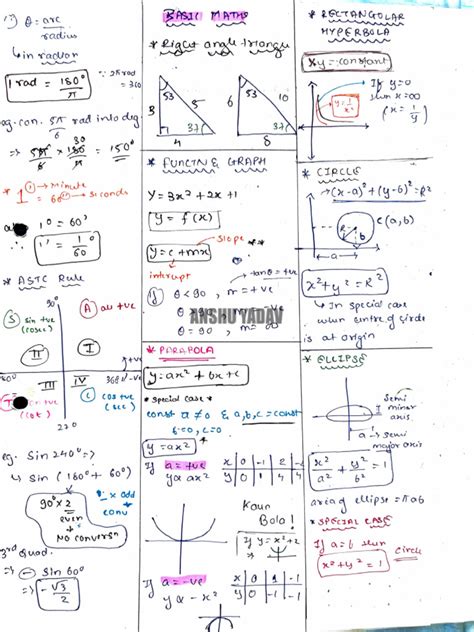 1) θ = arc
radius
↳ in radian
1 rad = 180°
π
∵ 2π rad
= 360
eg. con. 5π rad into deg
6
⇒ 5π × 180 = 150°
6 π
30
* 1 → Minute
= 60 → Seconds
1° = 60'
1' = 1°
60
* ASTC Rule
90°
S sin +ve
(cosec)
A all +ve
II
I
III
IV
360°
cos +ve
(sec)
(cot)
C
270
eg. Sin 240° ⇒
↳ Sin (180° + 60°)
90° × 2
even
↓
No conversn
3rd Quad.
⇒ - Sin 60°
⇒ - √3
2
BASIC MATHS
* Right angle triangle
53
5
3
37
4
53
10
6
37
8
* FUNCTN & GRAPH
Y = 3x² + 2x + 1
Y = f(x)
slope
Y = c + mx
intercept
tanθ = +ve
if θ < 90, m = +ve
θ > 90, m = -ve
θ = 90, m = ∞
ANSHUYADAV
* PARABOLA
Y = ax² + bx + c
* special case *
const a ≠ 0 & a, b, c = const
b = 0, c = 0
y = ax²
If a = +ve
y α x²
x 0 -1 -2
y 0 1 4 4
Koun
Bolo !
If y = x² + 2
If a = -ve
y α - x²
x 0 1 -1
y 0 -1 -1
* RECTANGULAR
HYPERBOLA
xy = constant
If y = 0
then x = ∞
(x = 1
y)
* CIRCLE
→ (x-a)² + (y-b)² = R²
c(a, b)
R
b
← a →
x² + y² = R²
↳ In special case
when entre of circle
is at origin
* ELLIPSE
Semi
minor
axis.
a → semi
major axis
x² + y² = 1
a² b²
area of ellipse = πab
* SPECIAL CASE
If a = b then
circle
x² + y² = 1